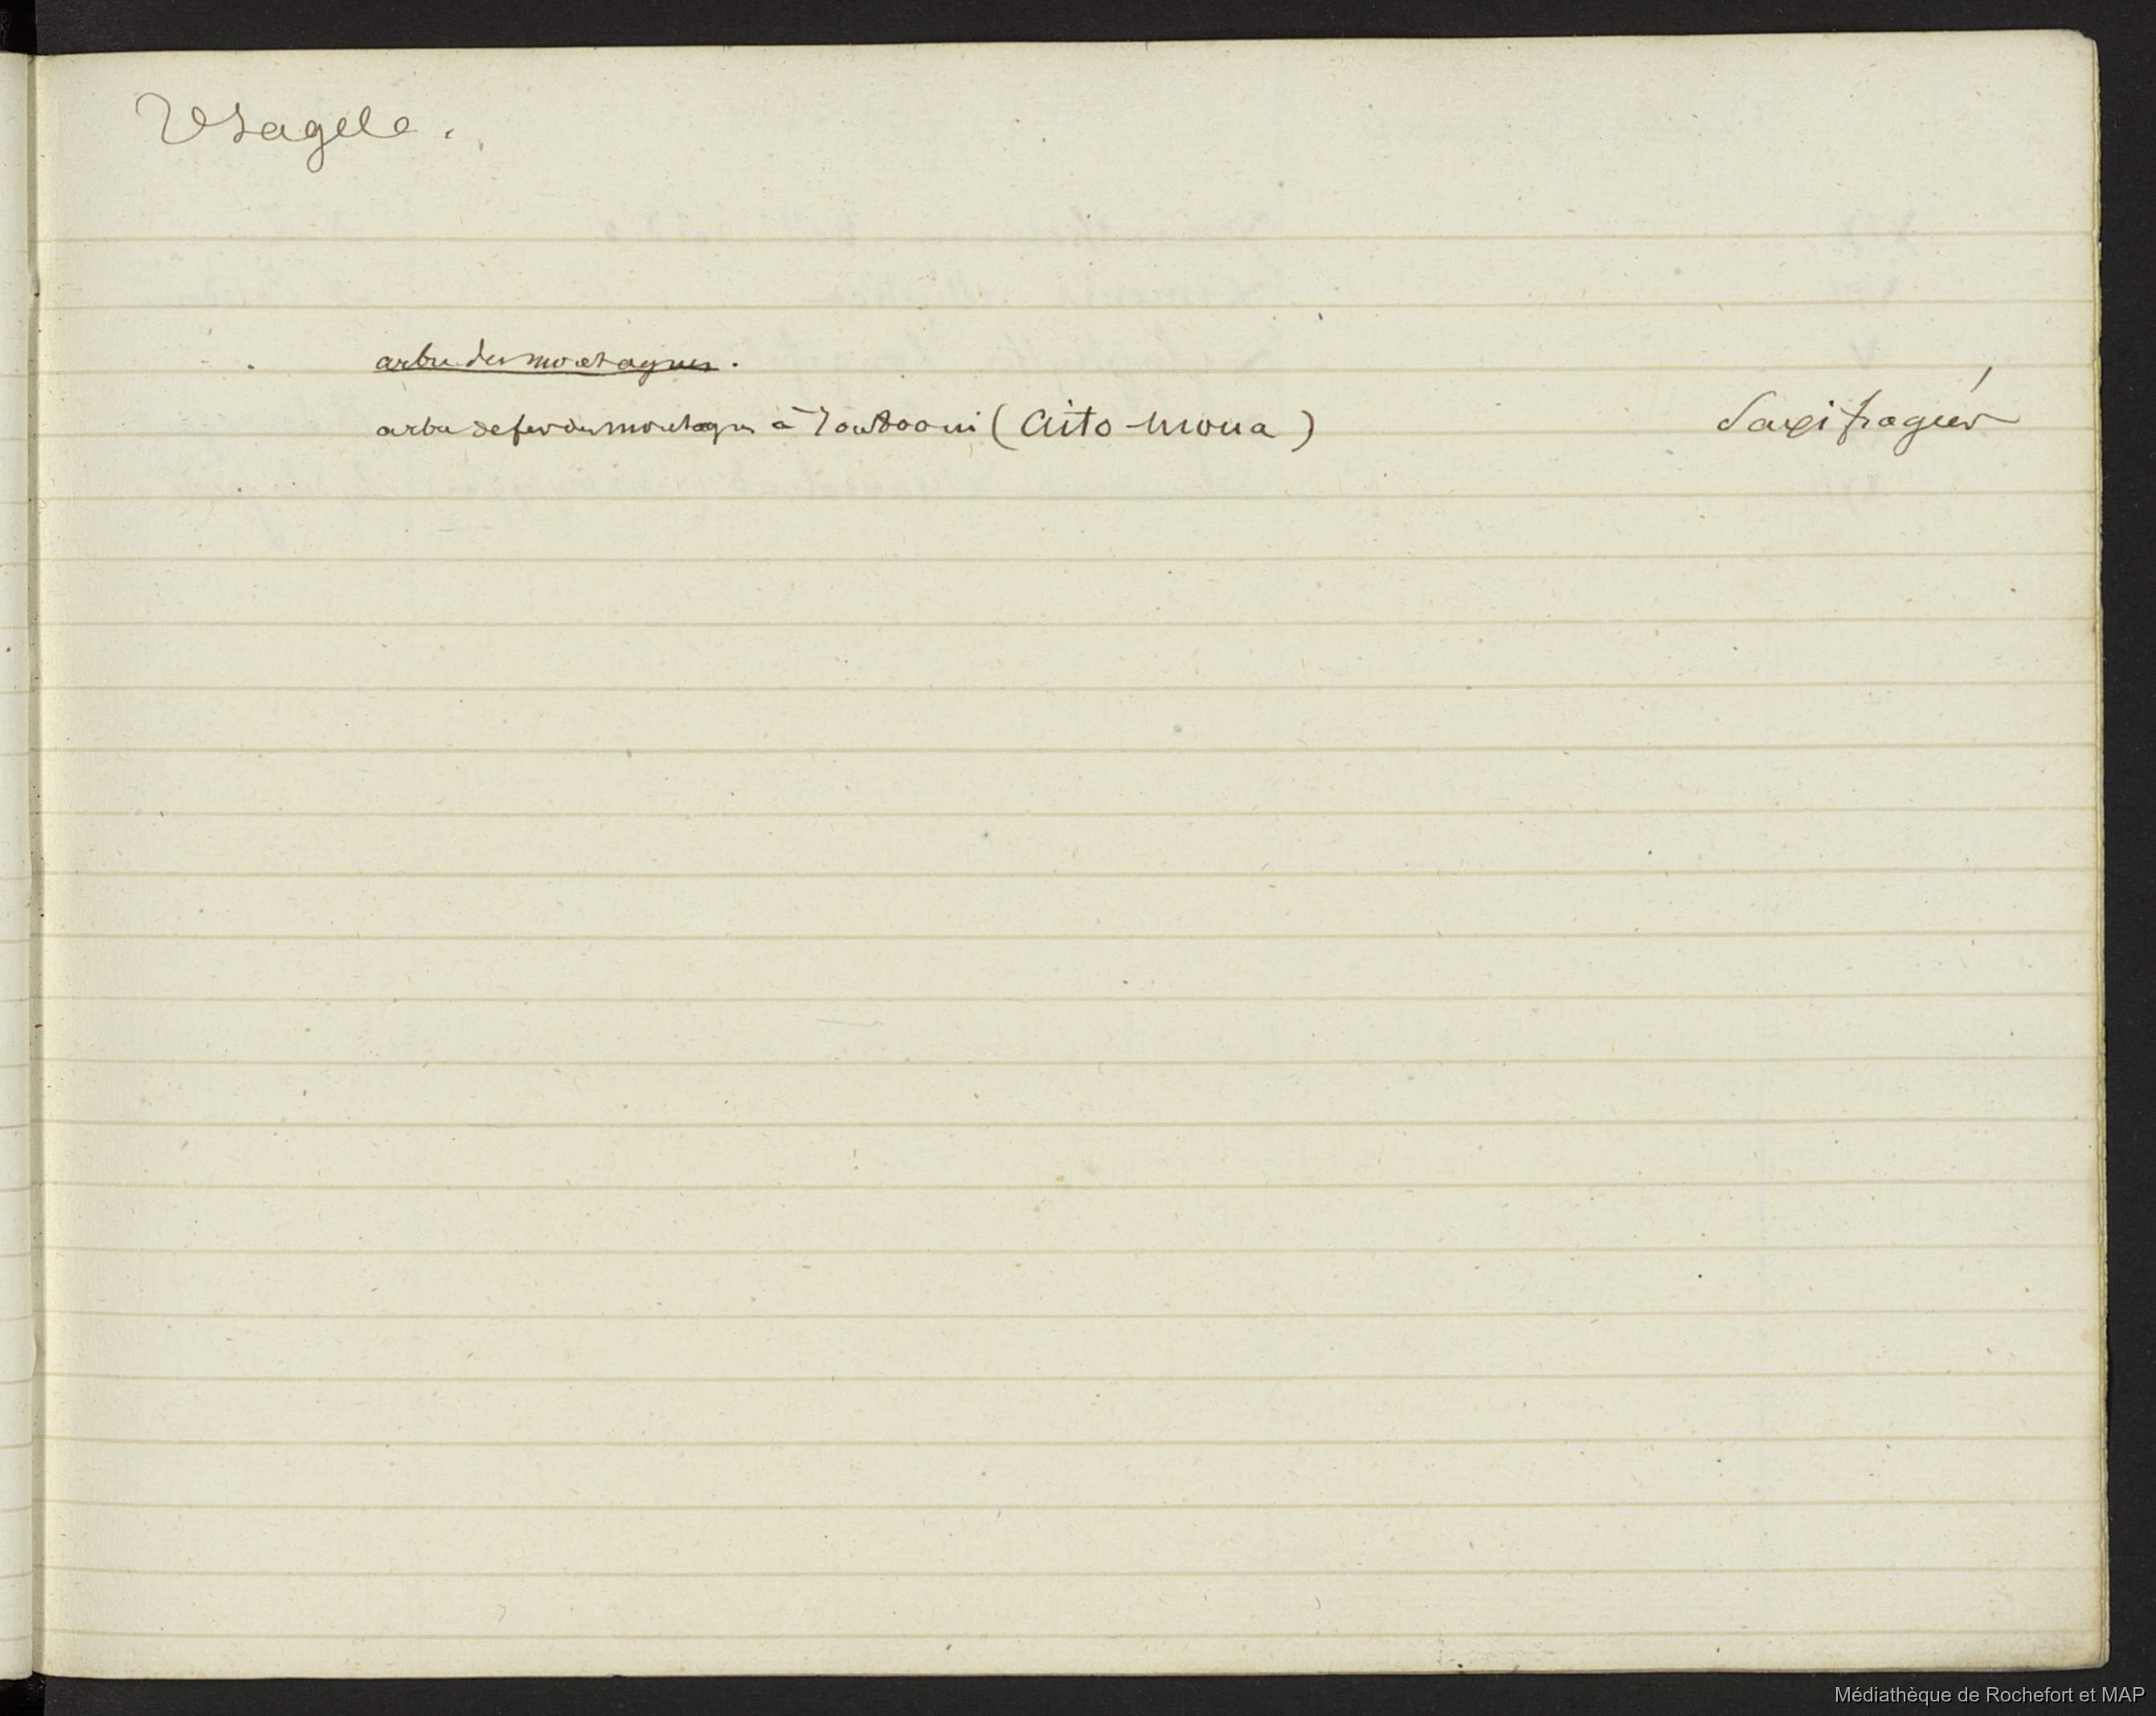 Usages.
arbre des montagnes.
arbre de fer des montagnes à Toubouai (Aito-moua) Saxifragées
Médiathèque de Rochefort et MAP